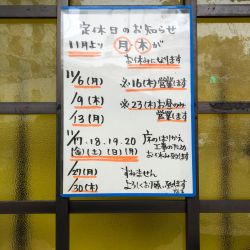 定休日のお知らせ
11月より 月 木 が
お休みになります
11/6(月) ※16(木)営業します
11/9(木) ※23(木)お昼のみ
営業します
11/13(月)
11/17.18.19.20 床のはりかえ
(金)(土)(日)(月) 工事のため
お休み致します
11/27(月) すみません
11/30(木) よろしくお願い致します